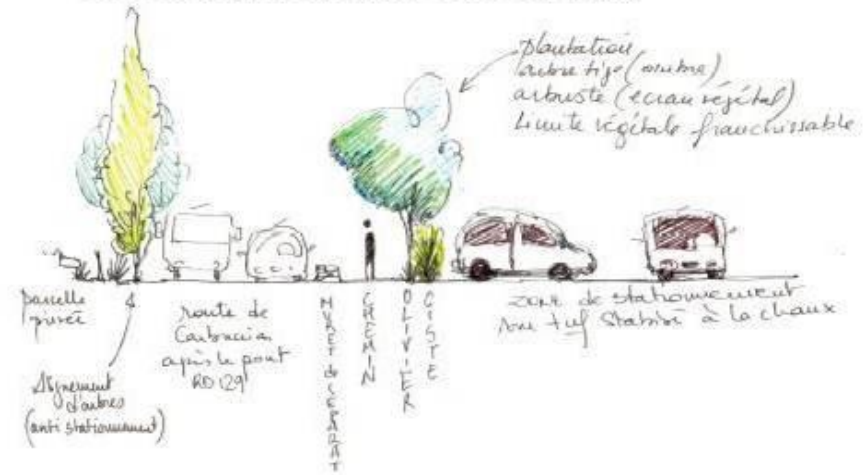 plantation
arbre tige (ombre)
arbuste (ecran végétal)
Limite végétale franchissable
parcelle
privée
route de
après le pont
RD 129
MURET de
CHEMIN
OLIVIER
CISTE
zone de stationnement
tuf stabilisé à la chaux
Alignement
d'arbres
(anti stationnement)